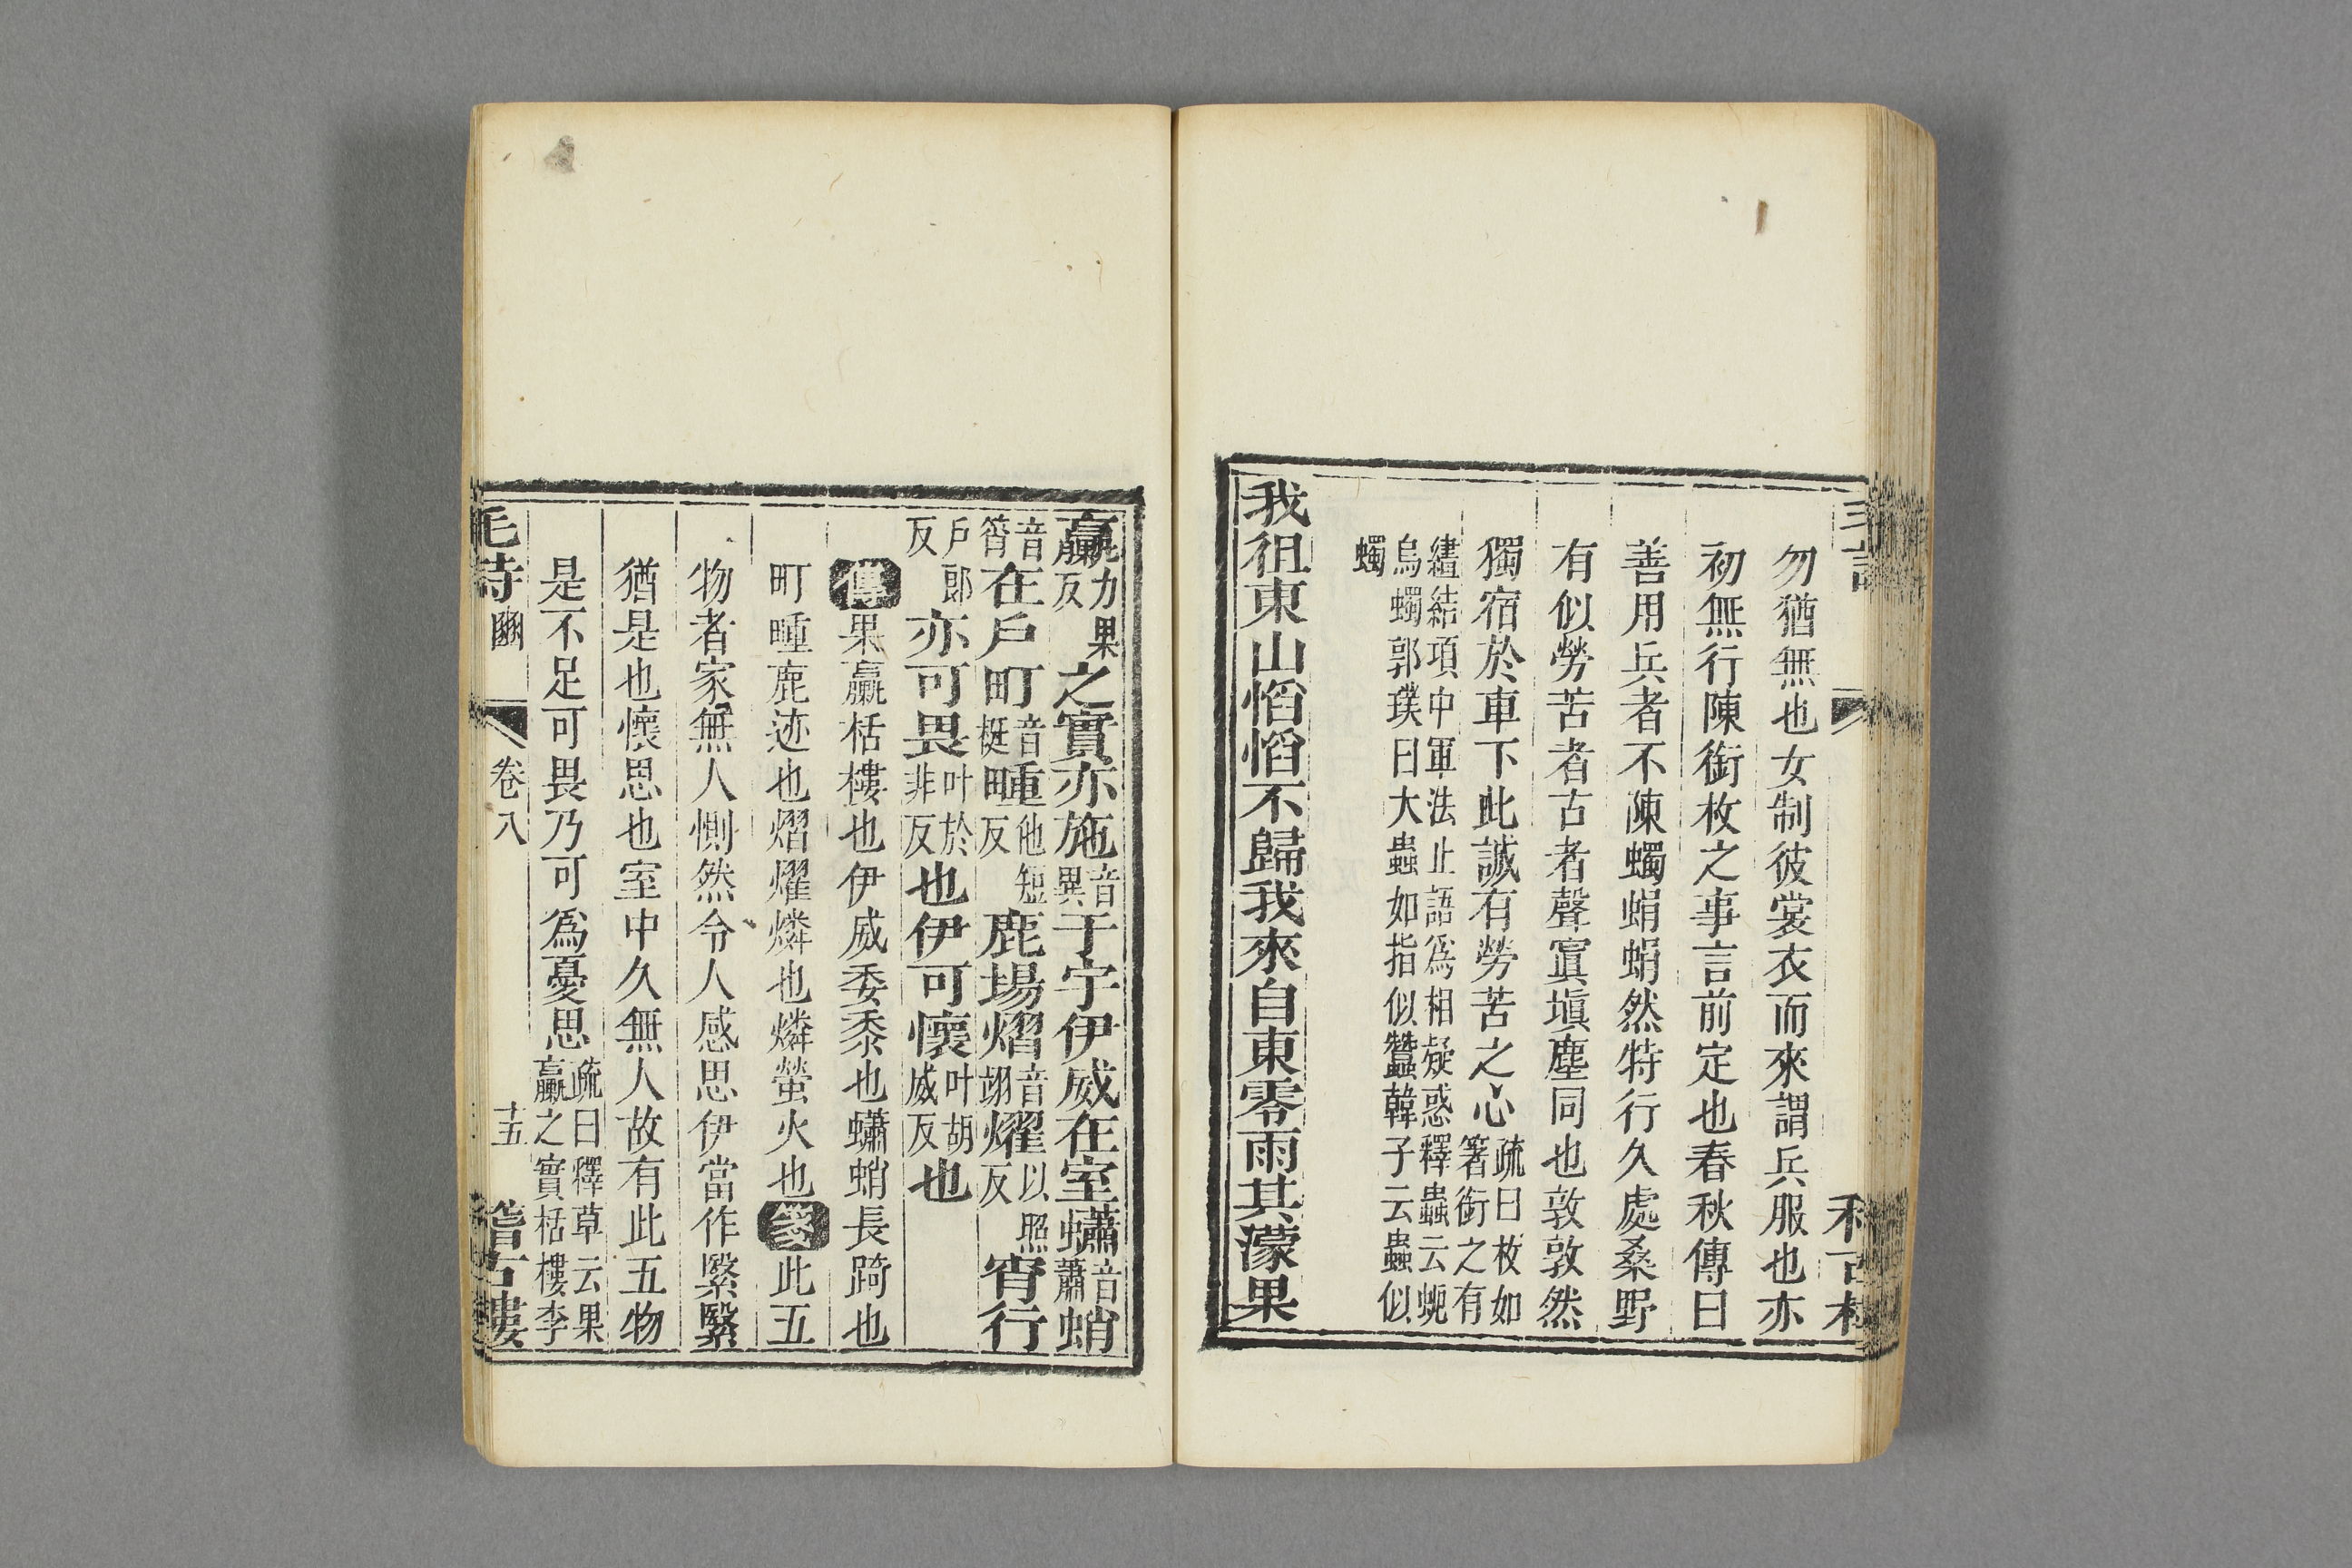 勿猶無也女制彼裳衣而來謂兵服也亦
初無行陳銜枚之事言前定也春秋傳曰
善用兵者不陳蠋蜎蜎然特行久處桑野
有似勞苦者古者聲寘塡塵同也敦敦然
獨宿於車下此誠有勞苦之心疏曰枚如箸銜之有
繣結項中軍法止語爲相疑惑釋蟲云蚅
烏蠋郭璞曰大蟲如指似蠶韓子云蟲似
蠋
我徂東山慆慆不歸我來自東零雨其濛果
臝力果反之實亦施音異于宇伊威在室蠨音蕭蛸
音筲在戶町音梃畽他短反鹿場熠音翊燿以照反宵行
戶郎反亦可畏叶於非反也伊可懷叶胡威反也
傳果臝栝樓也伊威委黍也蠨蛸長踦也
町畽鹿迹也熠燿燐也燐螢火也箋此五
物者家無人惻然令人感思伊當作繄繄
猶是也懷思也室中久無人故有此五物
是不足可畏乃可爲憂思疏曰釋草云果臝之實栝樓李
毛詩 豳 卷八 十五 稽古樓